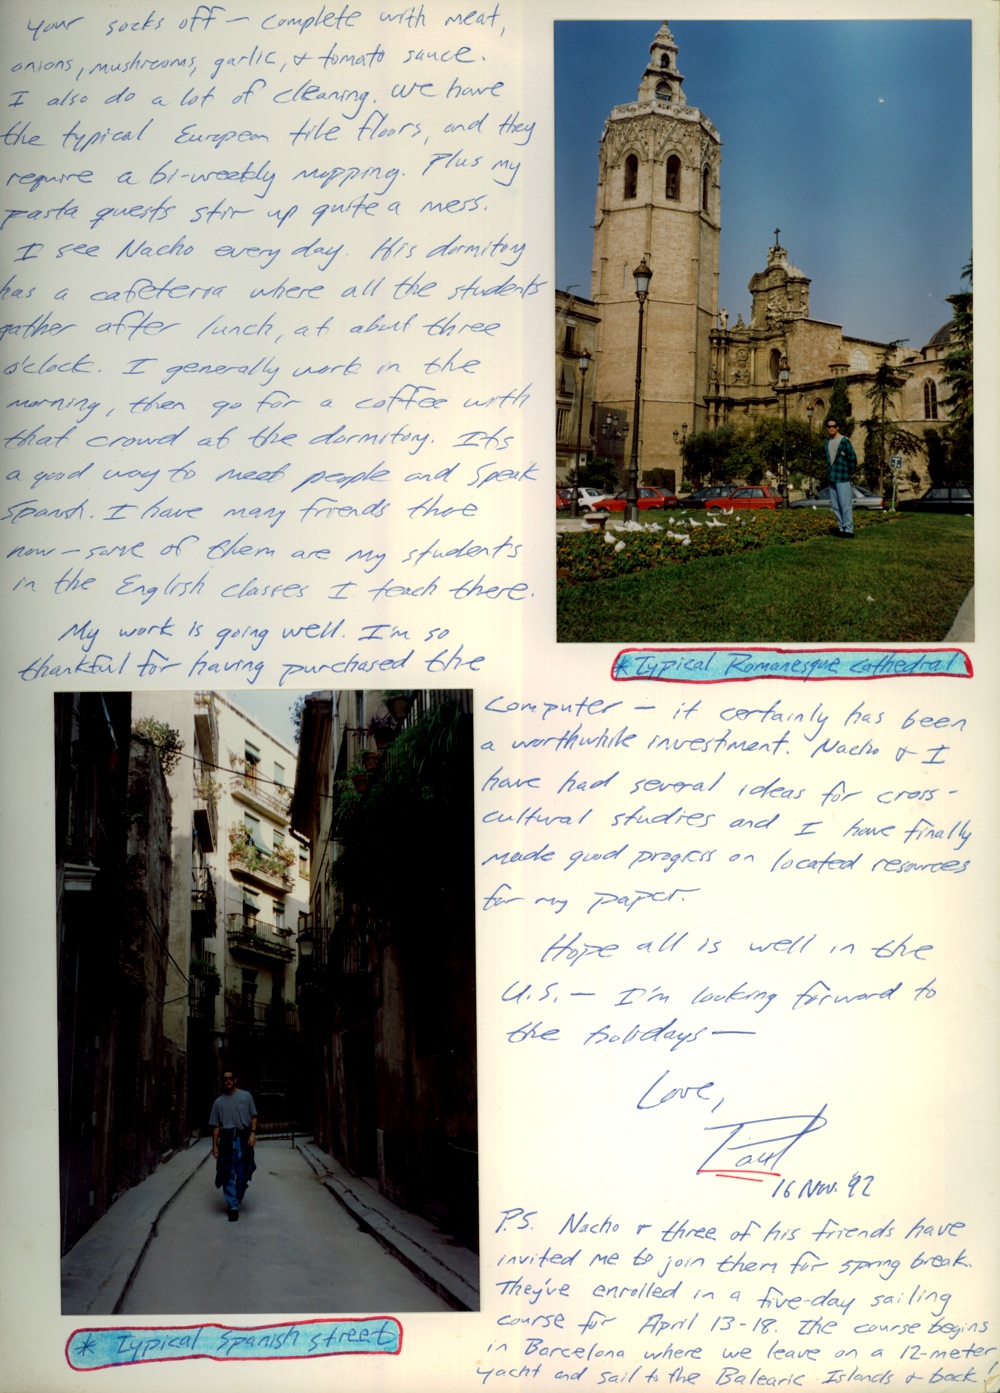 your socks off — complete with meat,
onions, mushrooms, garlic, & tomato sauce.
I also do a lot of cleaning. We have
the typical European tile floors, and they
require a bi-weekly mopping. Plus my
pasta quests stir up quite a mess.
I see Nacho every day. His dormitory
has a cafeteria where all the students
gather after lunch, at about three
o'clock. I generally work in the
morning, then go for a coffee with
that crowd at the dormitory. It's
a good way to meet people and speak
Spanish. I have many friends there
now — some of them are my students
in the English classes I teach there.
My work is going well. I'm so
thankful for having purchased the
* Typical Romanesque Cathedral
computer — it certainly has been
a worthwhile investment. Nacho & I
have had several ideas for cross-
cultural studies and I have finally
made good progress on located resources
for my paper.
Hope all is well in the
U.S. — I'm looking forward to
the holidays —
Love,
Paul
16 Nov. '92
P.S. Nacho & three of his friends have
invited me to join them for spring break.
They've enrolled in a five-day sailing
course for April 13-18. The course begins
in Barcelona where we leave on a 12-meter
yacht and sail to the Balearic Islands & back!
* Typical Spanish street